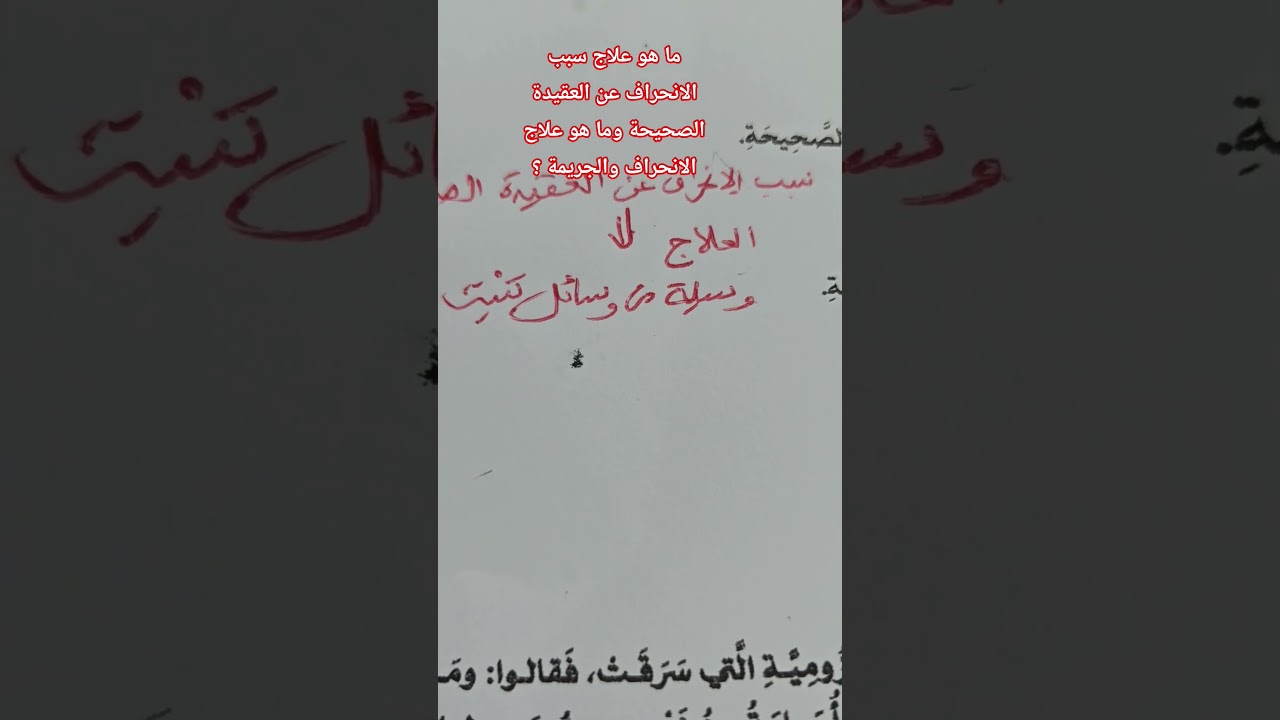 ما هو علاج سبب
الانحراف عن العقيدة
الصحيحة وما هو علاج
الانحراف والجريمة ؟
لصَّحِيحَةِ.
سبب الانحراف عن العقيدة الص
العلاج
وسيلة من وسائل تثبيت
ةِ.
زُومِيَّةِ الَّتي سَرَقَتْ، فَقالوا: ومَـ